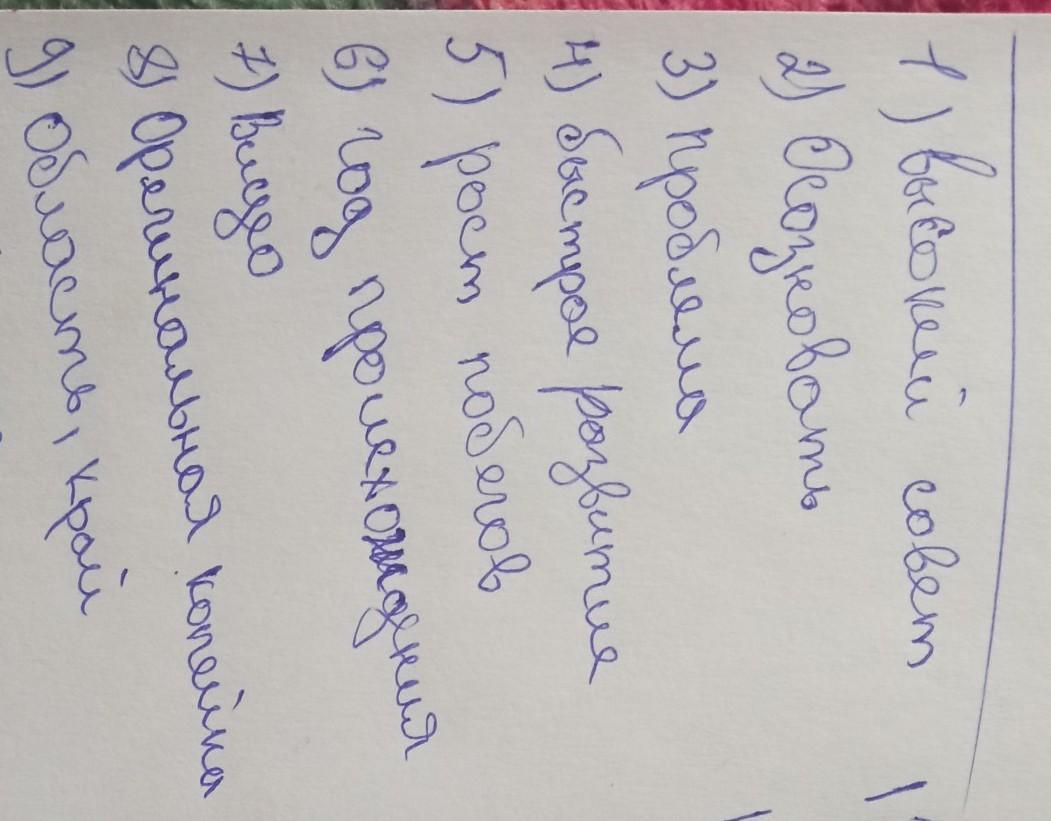 1) высокий совет
2) Осозновать
3) проблема
4) быстрое развитие
5) рост побегов
6) год происхождения
7) Видео
8) Оригинальная копейка
9) Область, край